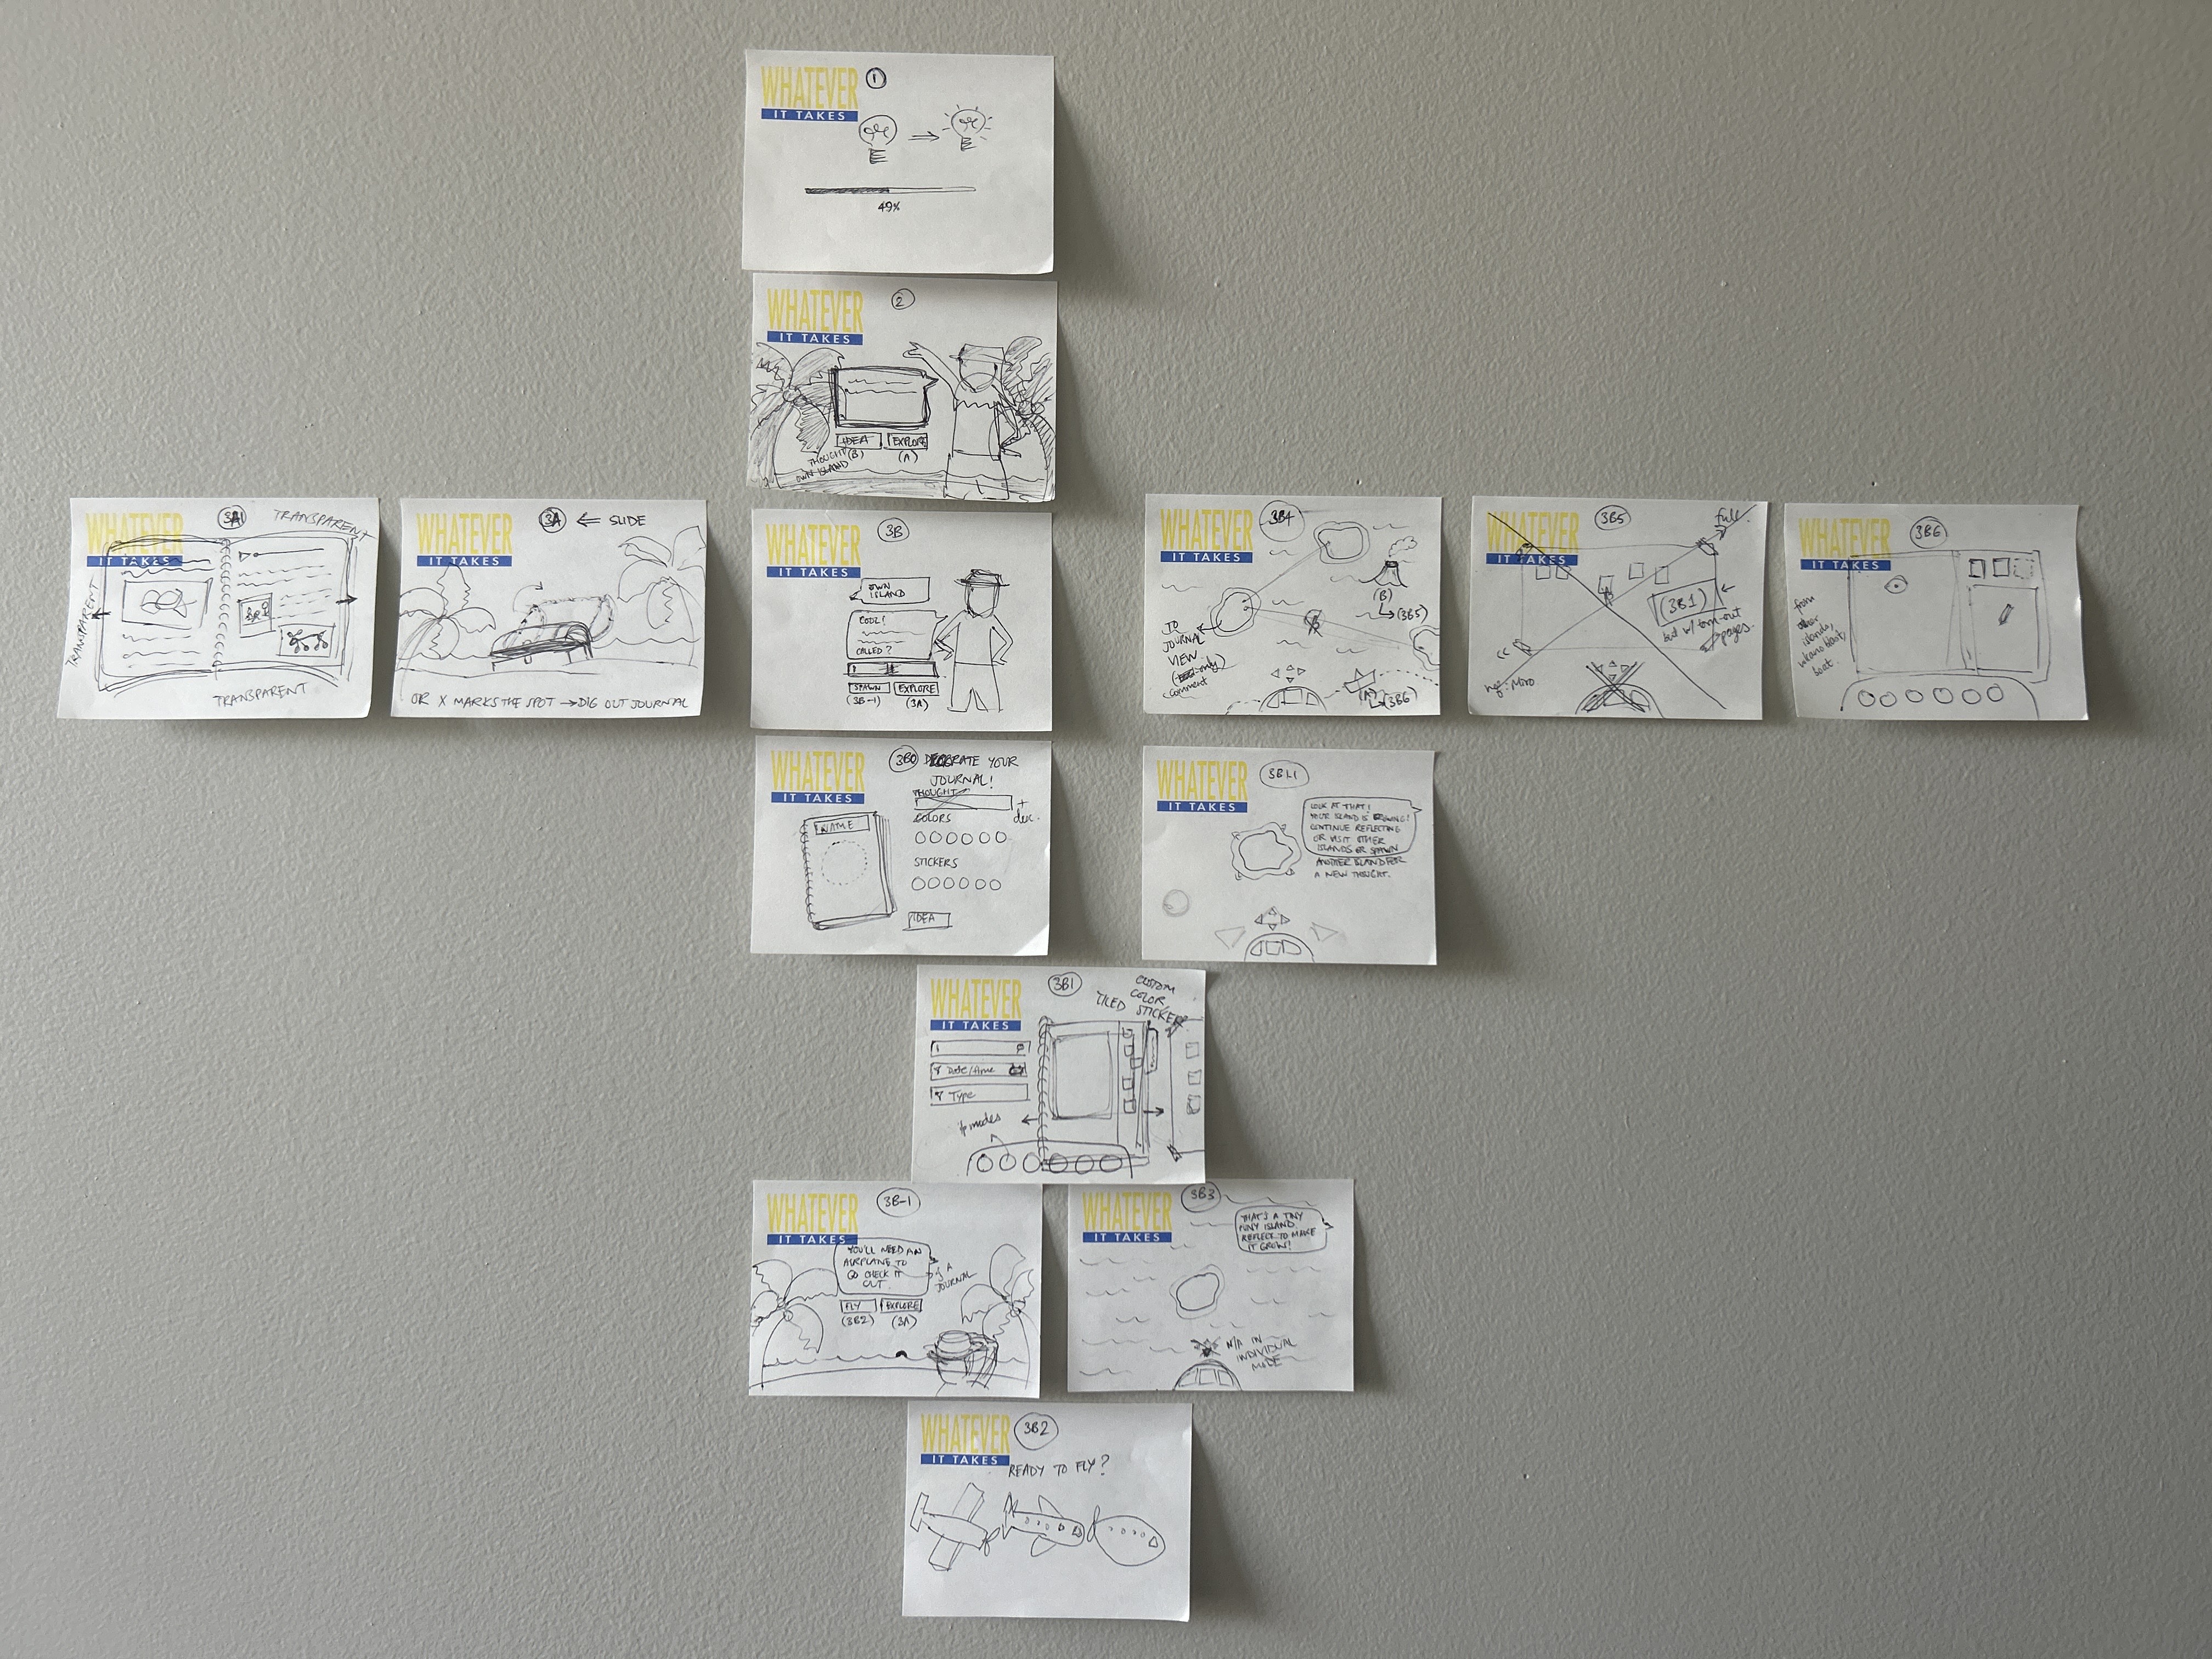 WHATEVER
IT TAKES
1
49%
WHATEVER
IT TAKES
2
IDEA
EXPLORE
THOUGHT
(B)
(A)
OWN ISLAND
WHATEVER
IT TAKES
3A1
TRANSPARENT
TRANSPARENT
TRANSPARENT
WHATEVER
IT TAKES
3A
SLIDE
OR X MARKS THE SPOT → DIG OUT JOURNAL
WHATEVER
IT TAKES
3B
OWN
ISLAND
COOL!
CALLED?
SPAWN
EXPLORE
(3B-1)
(3A)
WHATEVER
IT TAKES
3B4
TO
JOURNAL
VIEW
comment
(B)
(3B5)
(A)
(3B6)
WHATEVER
IT TAKES
3B5
full.
(3B1)
but w/ torn-out
pages.
Miro
WHATEVER
IT TAKES
3B6
from
islands,
boat.
WHATEVER
IT TAKES
3B0
YOUR
JOURNAL!
THOUGHT
+
COLORS
STICKERS
NAME
IDEA
WHATEVER
IT TAKES
LOOK AT THAT!
YOUR ISLAND IS GROWING!
CONTINUE REFLECTING
OR VISIT OTHER
ISLANDS OR SPAWN
ANOTHER ISLAND FOR
A NEW THOUGHT.
WHATEVER
IT TAKES
3B1
TILED
CUSTOM
COLOR,
STICKER
Date/time
Type
modes
WHATEVER
IT TAKES
3B-1
YOU'LL NEED AN
AIRPLANE TO
GO CHECK IT
OUT
& A
JOURNAL
FLY
EXPLORE
(3B2)
(3A)
WHATEVER
IT TAKES
3B3
THAT'S A TINY
PUNY ISLAND.
REFLECT TO MAKE
IT GROW!
N/A IN
INDIVIDUAL
MODE
WHATEVER
IT TAKES
3B2
READY TO FLY?